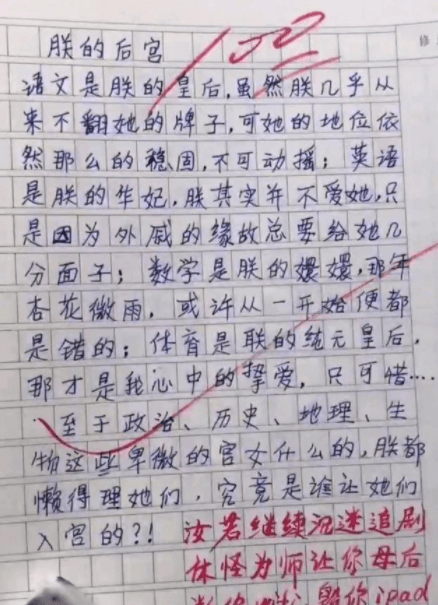 朕的后宫
100
修
语文是朕的皇后,虽然朕几乎从
来不翻她的牌子,可她的地位依
然那么的稳固,不可动摇；英语
是朕的华妃,朕其实并不爱她,只
是因为外戚的缘故总要给她几
分面子；数学是朕的嬛嬛,那年
杏花微雨,或许从一开始便都
是错的；体育是联的纯元皇后,
那才是我心中的挚爱,只可惜……
至于政治、历史、地理、生
物这些卑微的宫女什么的,朕都
懒得理她们,究竟是谁让她们
入宫的?!
汝若继续沉迷追剧
休怪为师让你母后
毁你ipad